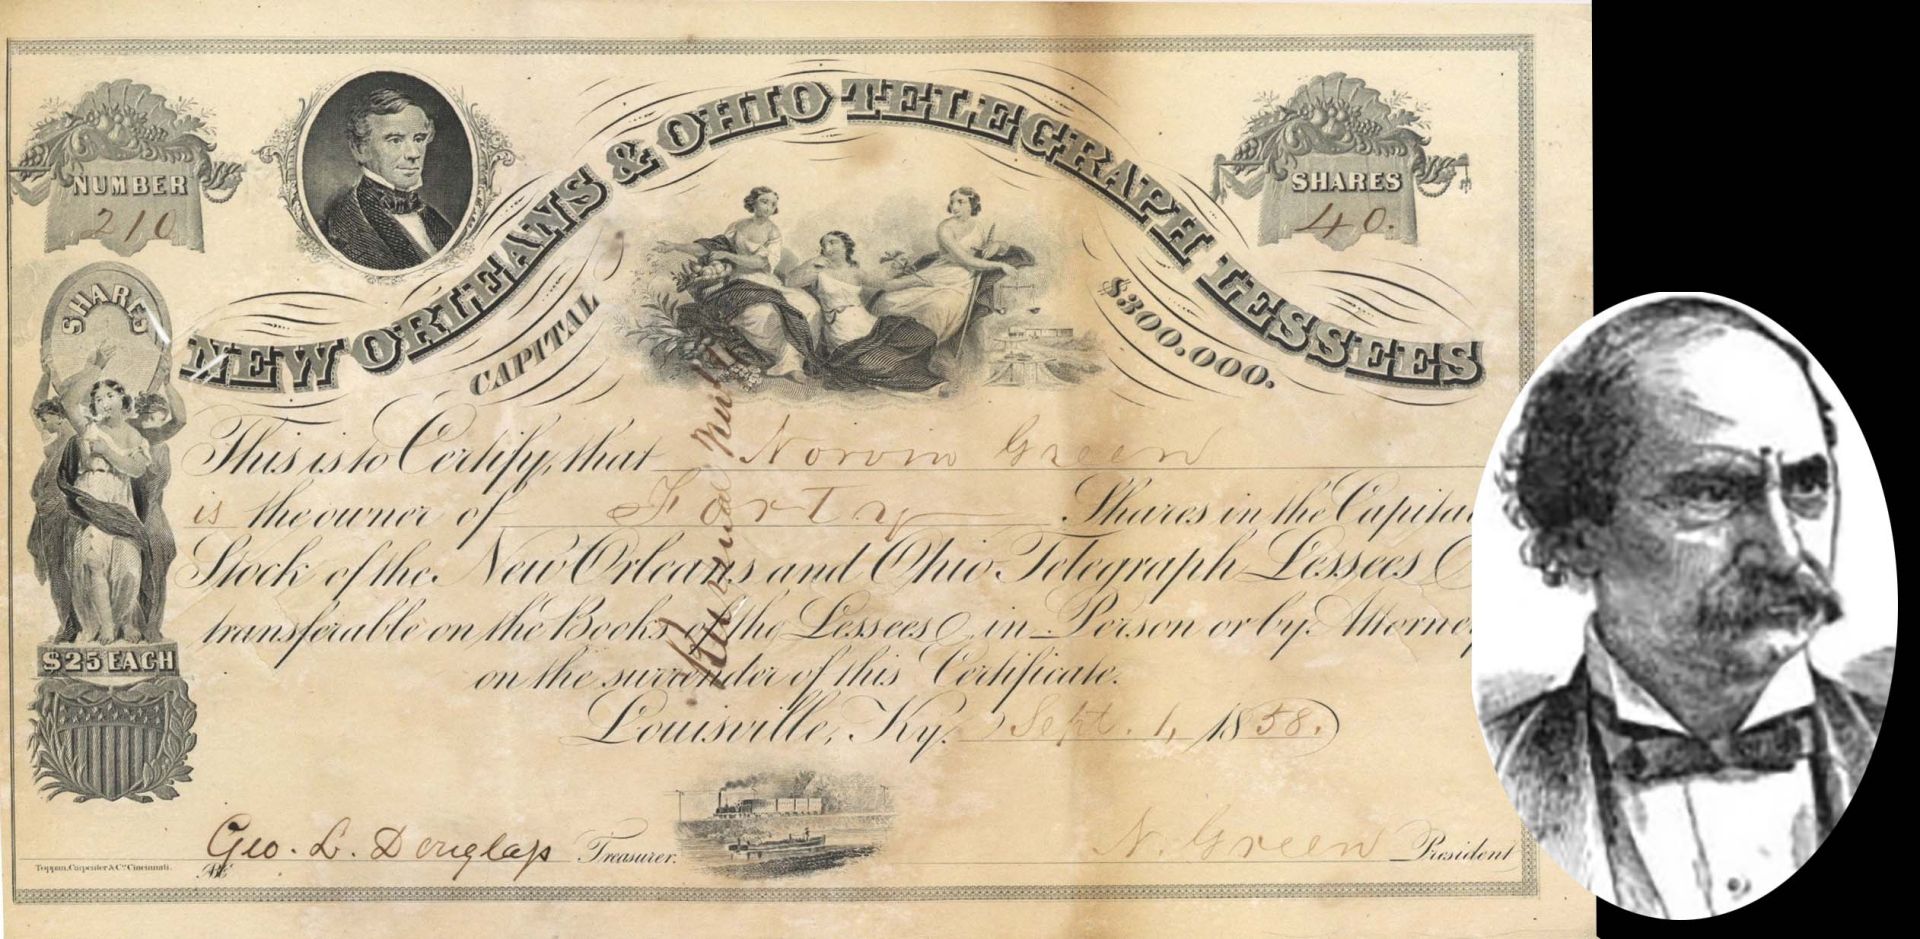 NEW ORLEANS & OHIO TELEGRAPH LESSEES
NUMBER
210
SHARES
40.
CAPITAL
$300.000.
SHARES
This is to Certify, that Norvin Green
is the owner of Forty Shares in the Capital
Stock of the New Orleans and Ohio Telegraph Lessees
transferable on the Books of the Lessees in Person or by Attorney
on the surrender of this Certificate.
$25 EACH
Louisville, Ky. Sept. 1, 1858.
Geo. L. Douglass Treasurer.
N. Green President
Toppan, Carpenter & Co. Cincinnati.